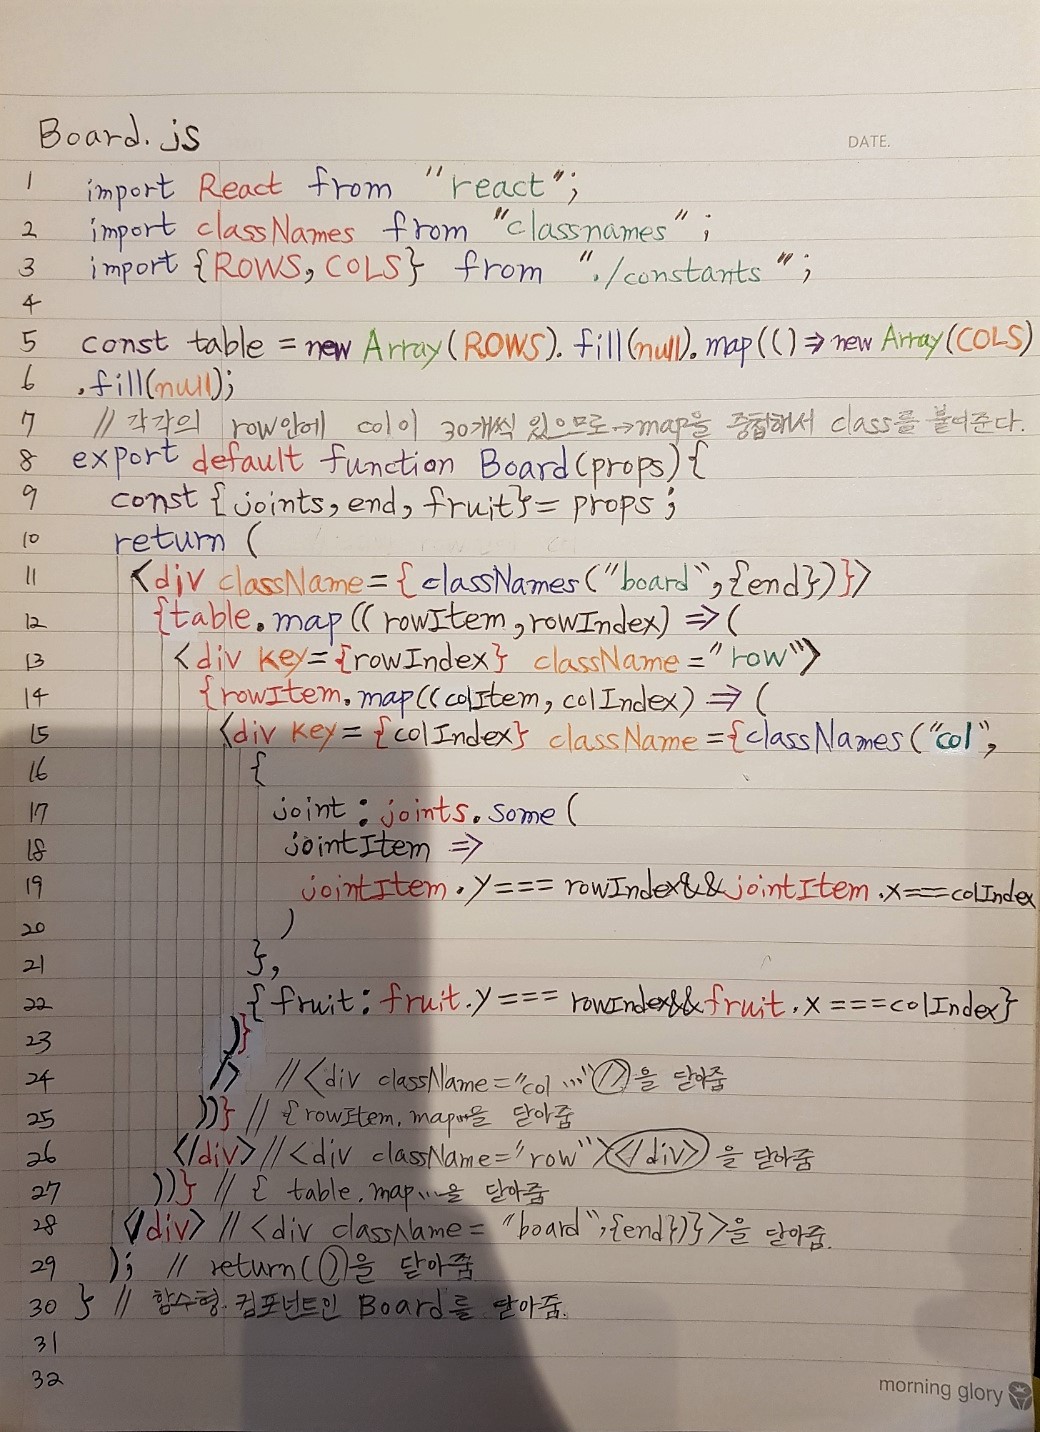 Board.js
DATE.
1 import React from "react";
2 import classNames from "classnames";
3 import {ROWS, COLS} from "./constants";
4
5 const table = new Array(ROWS).fill(null).map(() => new Array(COLS)
6 .fill(null);
7 // 각각의 row안에 col이 30개씩 있으므로→map을 중첩해서 class를 붙여준다.
8 export default function Board(props){
9 const {joints, end, fruit} = props;
10 return (
11 <div className={classNames("board",{end})}>
12 {table.map((rowItem, rowIndex) => (
13 <div key={rowIndex} className="row">
14 {rowItem.map((colItem, colIndex) => (
15 <div key={colIndex} className={classNames("col",
16 {
17 joint: joints.some(
18 jointItem =>
19 jointItem.y===rowIndex&&jointItem.x===colIndex
20 )
21 },
22 {fruit: fruit.y===rowIndex&&fruit.x===colIndex}
23 )}
24 /> // <div className="col ..."(/>)을 닫아줌
25 ))} // {rowItem.map...을 닫아줌
26 </div> // <div className="row"></div>을 닫아줌
27 ))} // { table.map...을 닫아줌
28 </div> // <div className="board",{end})}>을 닫아줌.
29 ); // return( )을 닫아줌
30 } // 함수형 컴포넌트인 Board를 닫아줌.
31
32
morning glory